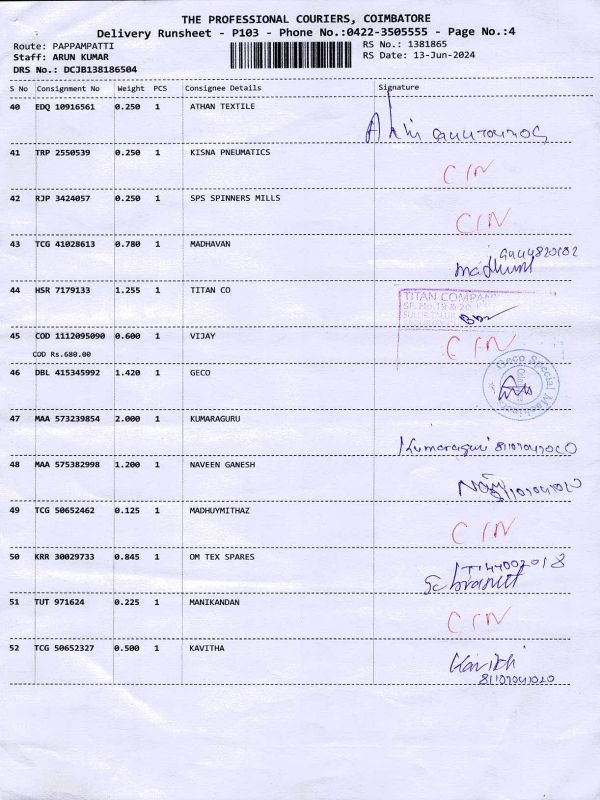 THE PROFESSIONAL COURIERS, COIMBATORE
Delivery Runsheet - P103 - Phone No.:0422-3505555 - Page No.:4
Route: PAPPAMPATTI
RS No.: 1381865
Staff: ARUN KUMAR
RS Date: 13-Jun-2024
DRS No.: DCJB138186504
S No Consignment No Weight PCS Consignee Details Signature
40 EDQ 10916561 0.250 1 ATHAN TEXTILE
41 TRP 2550539 0.250 1 KISNA PNEUMATICS
CIN
42 RJP 3424057 0.250 1 SPS SPINNERS MILLS
CIN
43 TCG 41028613 0.780 1 MADHAVAN
44 HSR 7179133 1.255 1 TITAN CO
TITAN COMPANY
45 COD 1112095090 0.600 1 VIJAY
CIN
COD Rs.680.00
46 DBL 415345992 1.420 1 GECO
Geco Special
47 MAA 573239854 2.000 1 KUMARAGURU
Kumaraguri
48 MAA 575382998 1.200 1 NAVEEN GANESH
49 TCG 50652462 0.125 1 MADHUYMITHAZ
CIN
50 KRR 30029733 0.845 1 OM TEX SPARES
51 TUT 971624 0.225 1 MANIKANDAN
CIN
52 TCG 50652327 0.500 1 KAVITHA